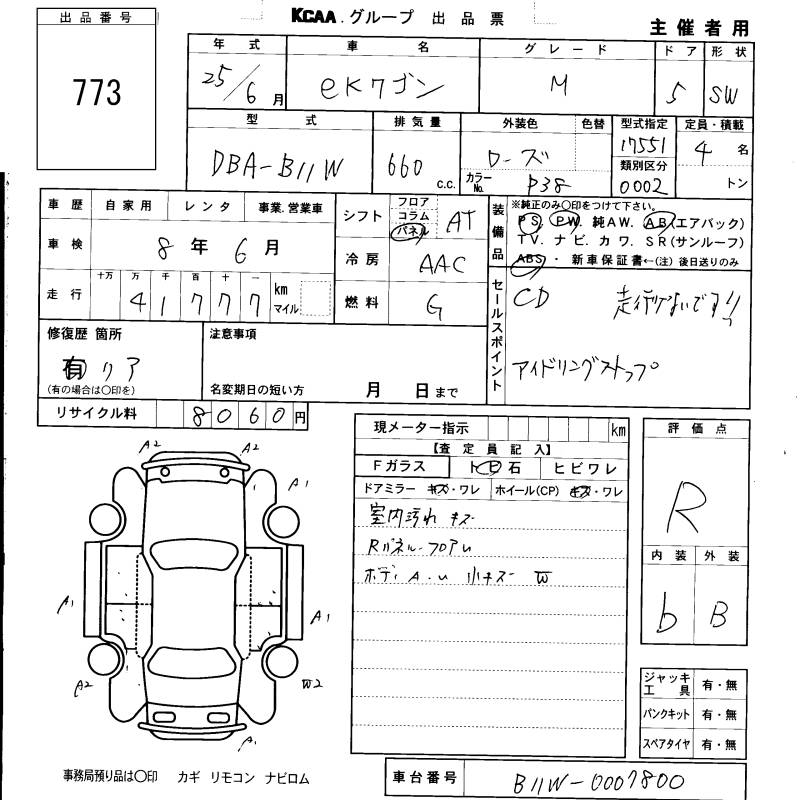 KCAA.グループ 出品票
主催者用
出品番号
773
年式 車名 グレード ドア 形状
25/6月 eKワゴン M 5 SW
型式 排気量 外装色 色替 型式指定 定員・積載
DBA-B11W 660 C.C. ローズ 17551 4名
カラーNo. P38 類別区分 0002 トン
車歴 自家用 レンタ 事業.営業車
車検 8年6月
十万 万 千 百 十 一
走行 41777 km マイル
シフト フロア コラム パネル AT
冷房 AAC
燃料 G
装備品
※純正のみ〇印をつけて下さい。
PS. PW. 純AW. AB(エアバック)
TV. ナビ. カワ. SR(サンルーフ)
ABS・新車保証書←(注)後日送りのみ
セールスポイント
CD 走行少ないです!!
アイドリングストップ
修復歴 箇所
有 リア
(有の場合は〇印を)
注意事項
名変期日の短い方 月 日まで
リサイクル料 8060円
現メーター指示 km
【査定員記入】
Fガラス トビ石 ヒビワレ
ドアミラー キズ・ワレ ホイール(CP) キズ・ワレ
室内汚れ キズ
Rパネル・フロアU
ボディ A.U 小キズ W
評価点
R
内装 外装
b B
ジャッキ工具 有・無
パンクキット 有・無
スペアタイヤ 有・無
A2 A2
A1
A1 A1
A2 W2
A1
事務局預り品は〇印 カギ リモコン ナビロム
車台番号 B11W-0007800